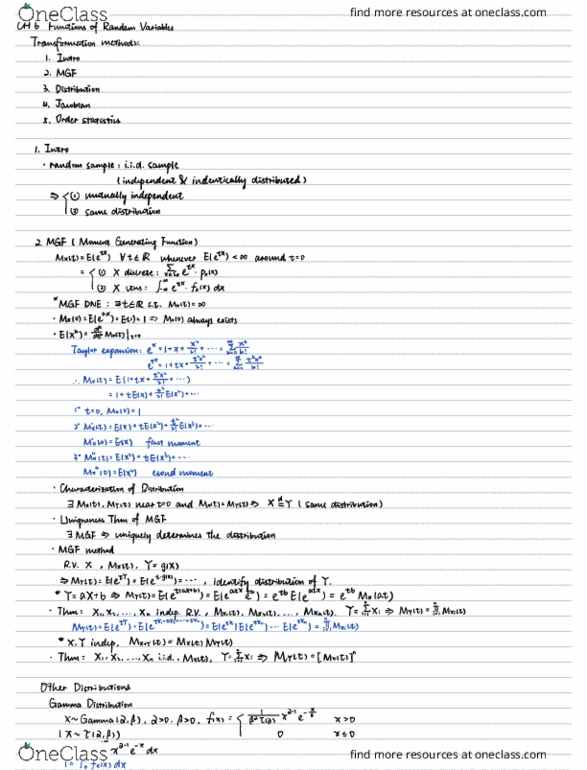 OneClass
find more resources at oneclass.com
CH 6 Functions of Random Variables
Transformation methods:
1. Intro
2. MGF
3. Distribution
4. Jacobian
5. Order statistics
1. Intro
· random sample : i.i.d. sample
(independent & indentically distributed)
⇒ { (1) mutually independent
(2) same distribution
2. MGF ( Moment Generating Function )
Mx(t) = E(e^{tX}) ∀ t∈R whenever E(e^{tX}) < ∞ around t=0
= { (1) X discrete : Σ e^{tx} · px(x)
(2) X conti : ∫_{-∞}^{∞} e^{tx} · fx(x) dx
* MGF DNE : ∃ t∈R s.t. Mx(t) = ∞
· Mx(0) = E(e^{0X}) = E(1) = 1 ⇒ Mx(0) always exists
· E(X^k) = d^k/dt^k Mx(t)|_{t=0}
Taylor expansion: e^x = 1 + x + x²/2! + ··· = Σ x^k/k!
e^{tx} = 1 + tx + t²x²/2! + ··· = Σ t^k x^k/k!
∴ Mx(t) = E(1 + tX + t²X²/2! + ···)
= 1 + tE(X) + t²/2! E(X²) + ···
1° t=0, Mx(0) = 1
2° Mx'(t) = E(X) + tE(X²) + t²/2! E(X³) + ···
Mx'(0) = E(X) first moment
3° Mx''(t) = E(X²) + tE(X³) + ···
Mx''(0) = E(X²) second moment
· Characterization of Distribution
∃ Mx(t), MY(t) near t=0 and Mx(t) = MY(t) ⇒ X =^d Y ( same distribution)
· Uniqueness Thm of MGF
∃ MGF ⇒ uniquely determines the distribution
· MGF method
R.V. X , Mx(t), Y = g(X)
⇒ MY(t) = E(e^{tY}) = E(e^{t·g(X)}) = ··· , identify distribution of Y.
* Y = aX + b ⇒ MY(t) = E(e^{t(aX+b)}) = E(e^{atX} e^{tb}) = e^{tb} E(e^{atX}) = e^{tb} Mx(at)
· Thm : X₁, X₂, ..., Xn indep. R.V., Mx₁(t), Mx₂(t), ..., Mxn(t). Y = Σ Xi ⇒ MY(t) = Π Mxi(t)
MY(t) = E(e^{tY}) = E(e^{tX₁+tX₂+···+tXn}) = E(e^{tX₁}) E(e^{tX₂}) ··· E(e^{tXn}) = Π Mxi(t)
* X, Y indep, Mx+Y(t) = Mx(t) MY(t)
· Thm : X₁, X₂, ..., Xn i.i.d., Mx(t), Y = Σ Xi ⇒ MY(t) = [Mx(t)]^n
Other Distributions
Gamma Distribution
X ~ Gamma(α, β), α>0, β>0, f(x) = { 1/(β^α Γ(α)) x^{α-1} e^{-x/β} x > 0
( X ~ Γ(α, β)) 0 x ≤ 0
x^{α-1} e^{-x} dx
OneClass
find more resources at oneclass.com
1 = ∫₀ fx(x) dx